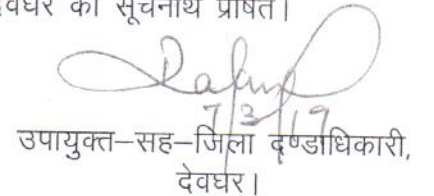 देवघर को सूचनार्थ प्रेषित।
7/3/19
उपायुक्त–सह–जिला दण्डाधिकारी,
देवघर।